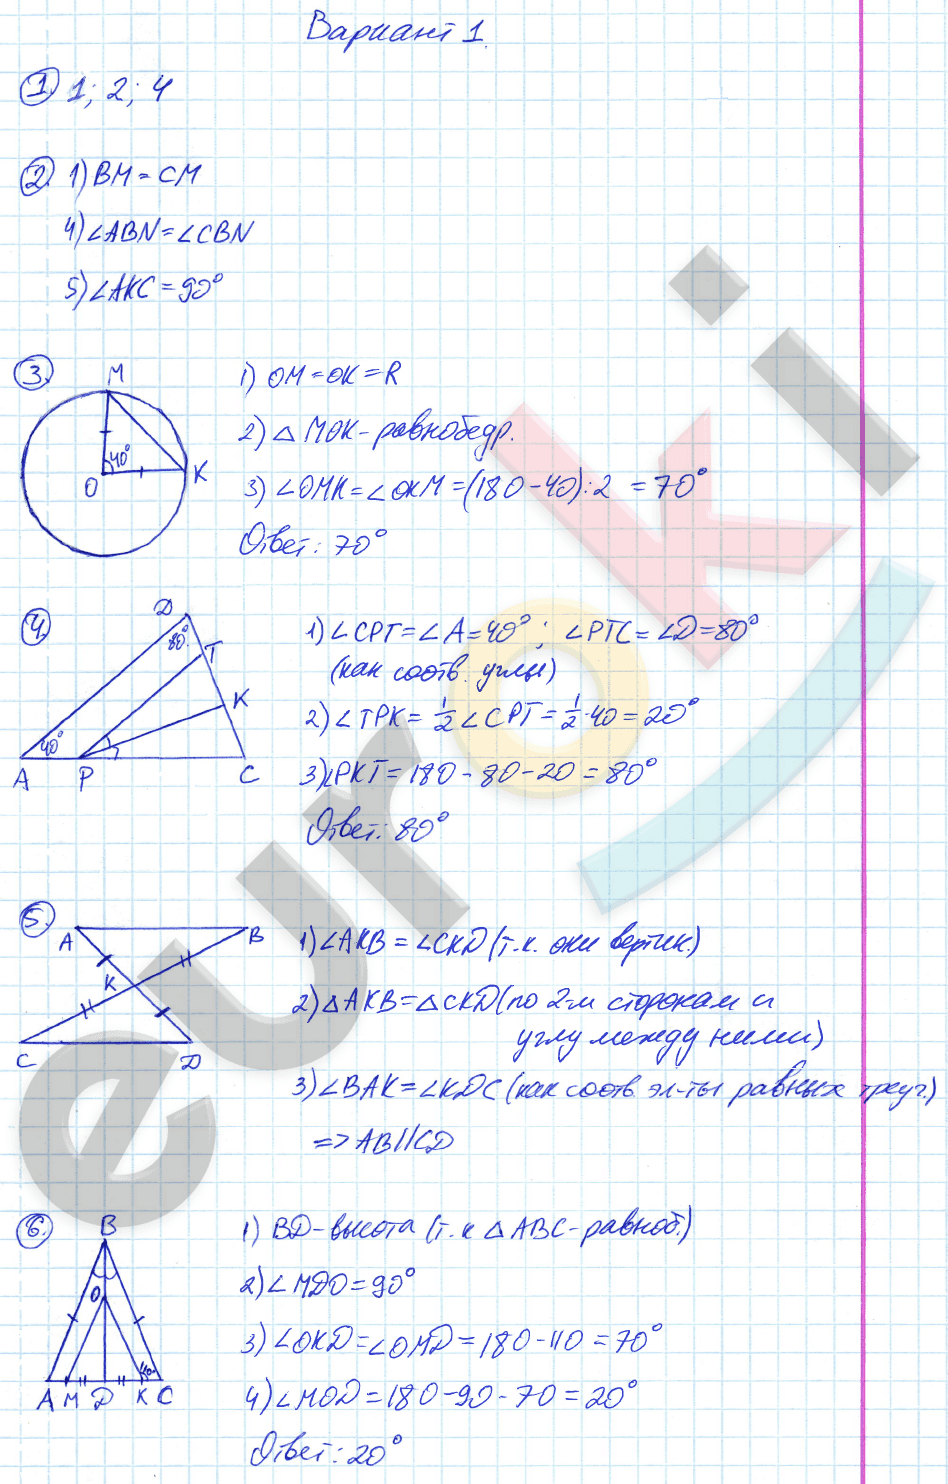 Вариант 1.
1. 1; 2; 4
2. 1) BM = CM
4) ∠ABN = ∠CBN
5) ∠AKC = 90°
3. M
40°
O
K
1) OM = OK = R
2) △ MOK - равнобедр.
3) ∠OMK = ∠OKM = (180 - 40) : 2 = 70°
Ответ: 70°
4. D
80°
T
K
40°
A P C
1) ∠CPT = ∠A = 40° ; ∠PTC = ∠D = 80°
(как соотв. углы)
2) ∠TPK = 1/2 ∠CPT = 1/2 · 40 = 20°
3) ∠PKT = 180 - 80 - 20 = 80°
Ответ: 80°
5. A B
K
C D
1) ∠AKB = ∠CKD (т.к. они вертик.)
2) △AKB = △CKD (по 2-м сторонам и
углу между ними)
3) ∠BAK = ∠KDC (как соотв. эл-ты равных треуг.)
=> AB || CD
6. B
O
110°
A M D K C
1) BD - высота (т.к △ABC - равноб.)
2) ∠MDO = 90°
3) ∠OKD = ∠OMD = 180 - 110 = 70°
4) ∠MOD = 180 - 90 - 70 = 20°
Ответ: 20°
euroki